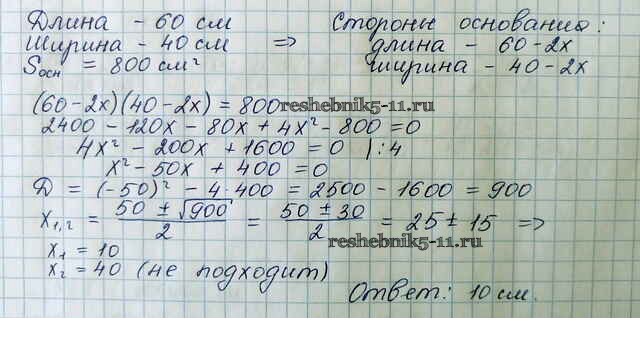 Длина - 60 см
Ширина - 40 см => Стороны основания:
Sосн = 800 см² длина - 60-2x
ширина - 40-2x
(60-2x)(40-2x) = 800
reshebnik5-11.ru
2400 - 120x - 80x + 4x² - 800 = 0
4x² - 200x + 1600 = 0 |:4
x² - 50x + 400 = 0
D = (-50)² - 4·400 = 2500 - 1600 = 900
x₁,₂ = (50 ± √900)/2 = (50 ± 30)/2 = 25 ± 15 =>
reshebnik5-11.ru
x₁ = 10
x₂ = 40 (не подходит)
Ответ: 10 см.